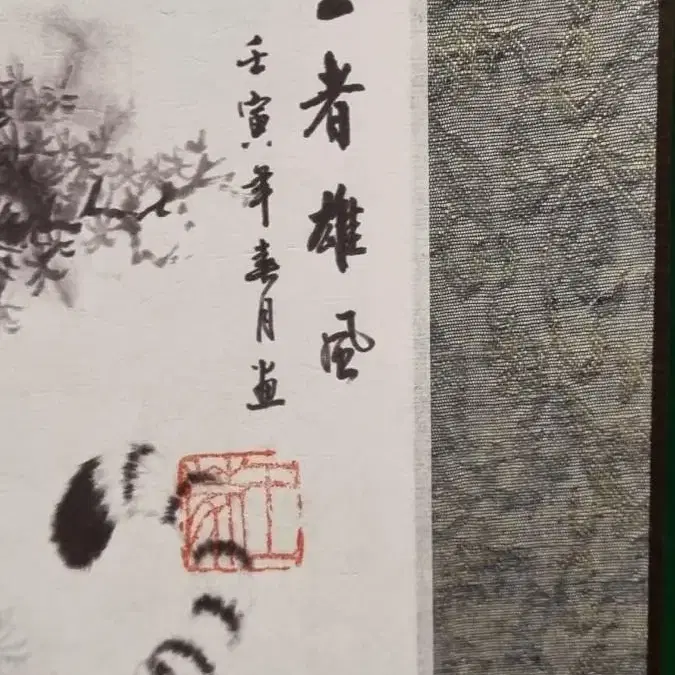 者雄風
壬寅年春月画